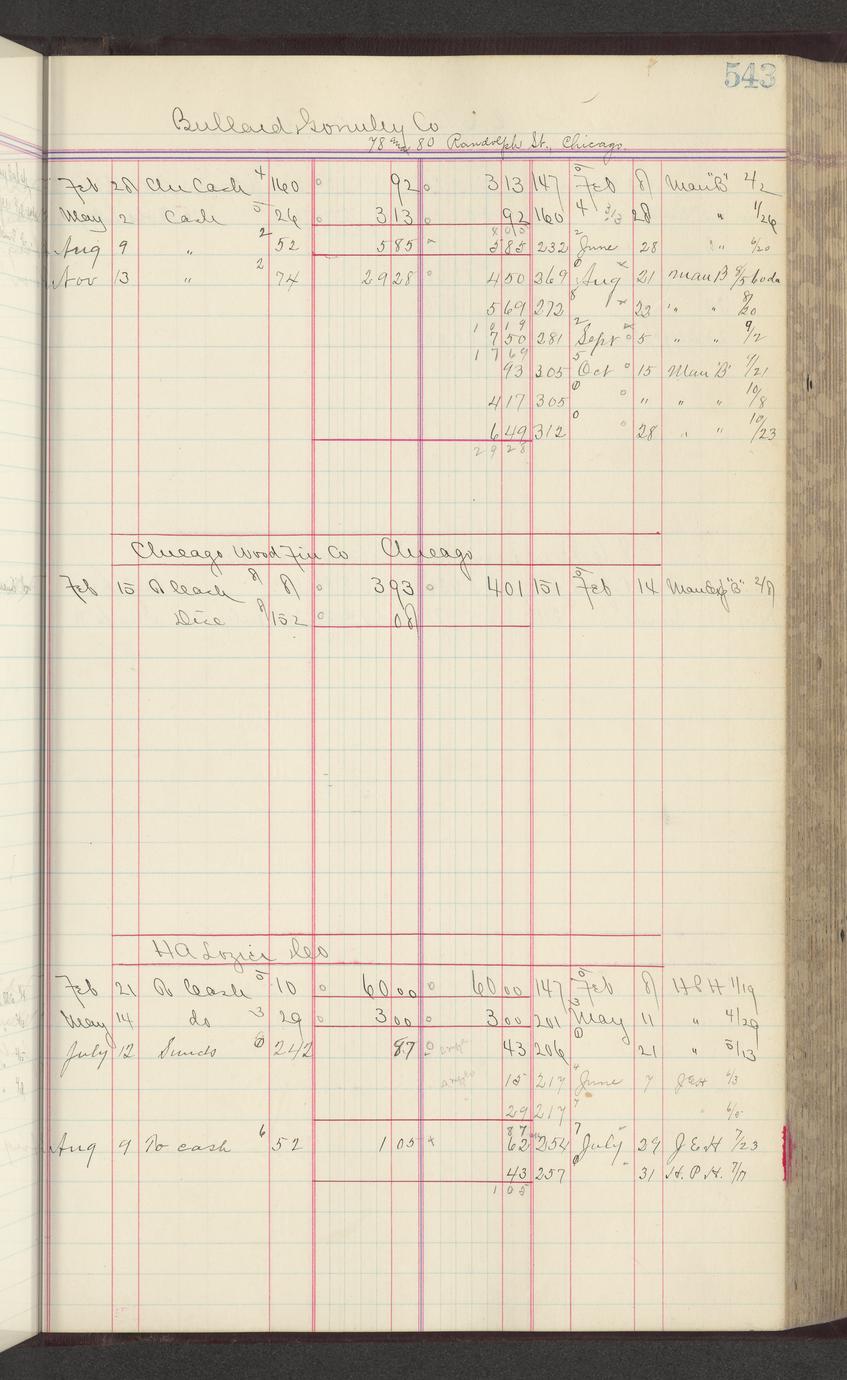 543
Bullard & Gormley Co
78 and 80 Randolph St., Chicago.
Feb 28 Cash 4 160 92 313 147 Feb 8 Man "B" 2/2
May 2 Cash 5 26 313 92 160 4 28 " 1/26
405
Aug 9 " 2 52 585 585 232 2 June 28 " " 6/20
Nov 13 " 2 74 2928 450 269 0 Aug 21 Man B 8/5 60da
569 272 8 22 " " 8/20
1019
750 281 2 Sept 5 " " 9/2
1769
93 305 5 Oct 15 Man "B"
417 305 0 " " " 10/8
649 312 0 28 " " 10/23
2928
Chicago Wood Fin Co Chicago
Feb 15 To Cash 8 8 393 401 151 5 Feb 14 "B" 2/8
Disc 8 152 08
H A Lozier & Co
Feb 21 To Cash 5 10 60 00 60 00 147 5 Feb 8 H P H 1/19
May 14 do 3 29 3 00 3 00 201 3 May 11 " 4/29
July 12 Sunds 0 242 87 43 206 0 21 " 5/13
15 217 4 June 7 J E H 6/3
29 217 7 " 6/5
87
Aug 9 To cash 6 52 1 05 62 254 7 July 29 J. E. H 7/23
43 257 0 31 H. P. H.
1 05